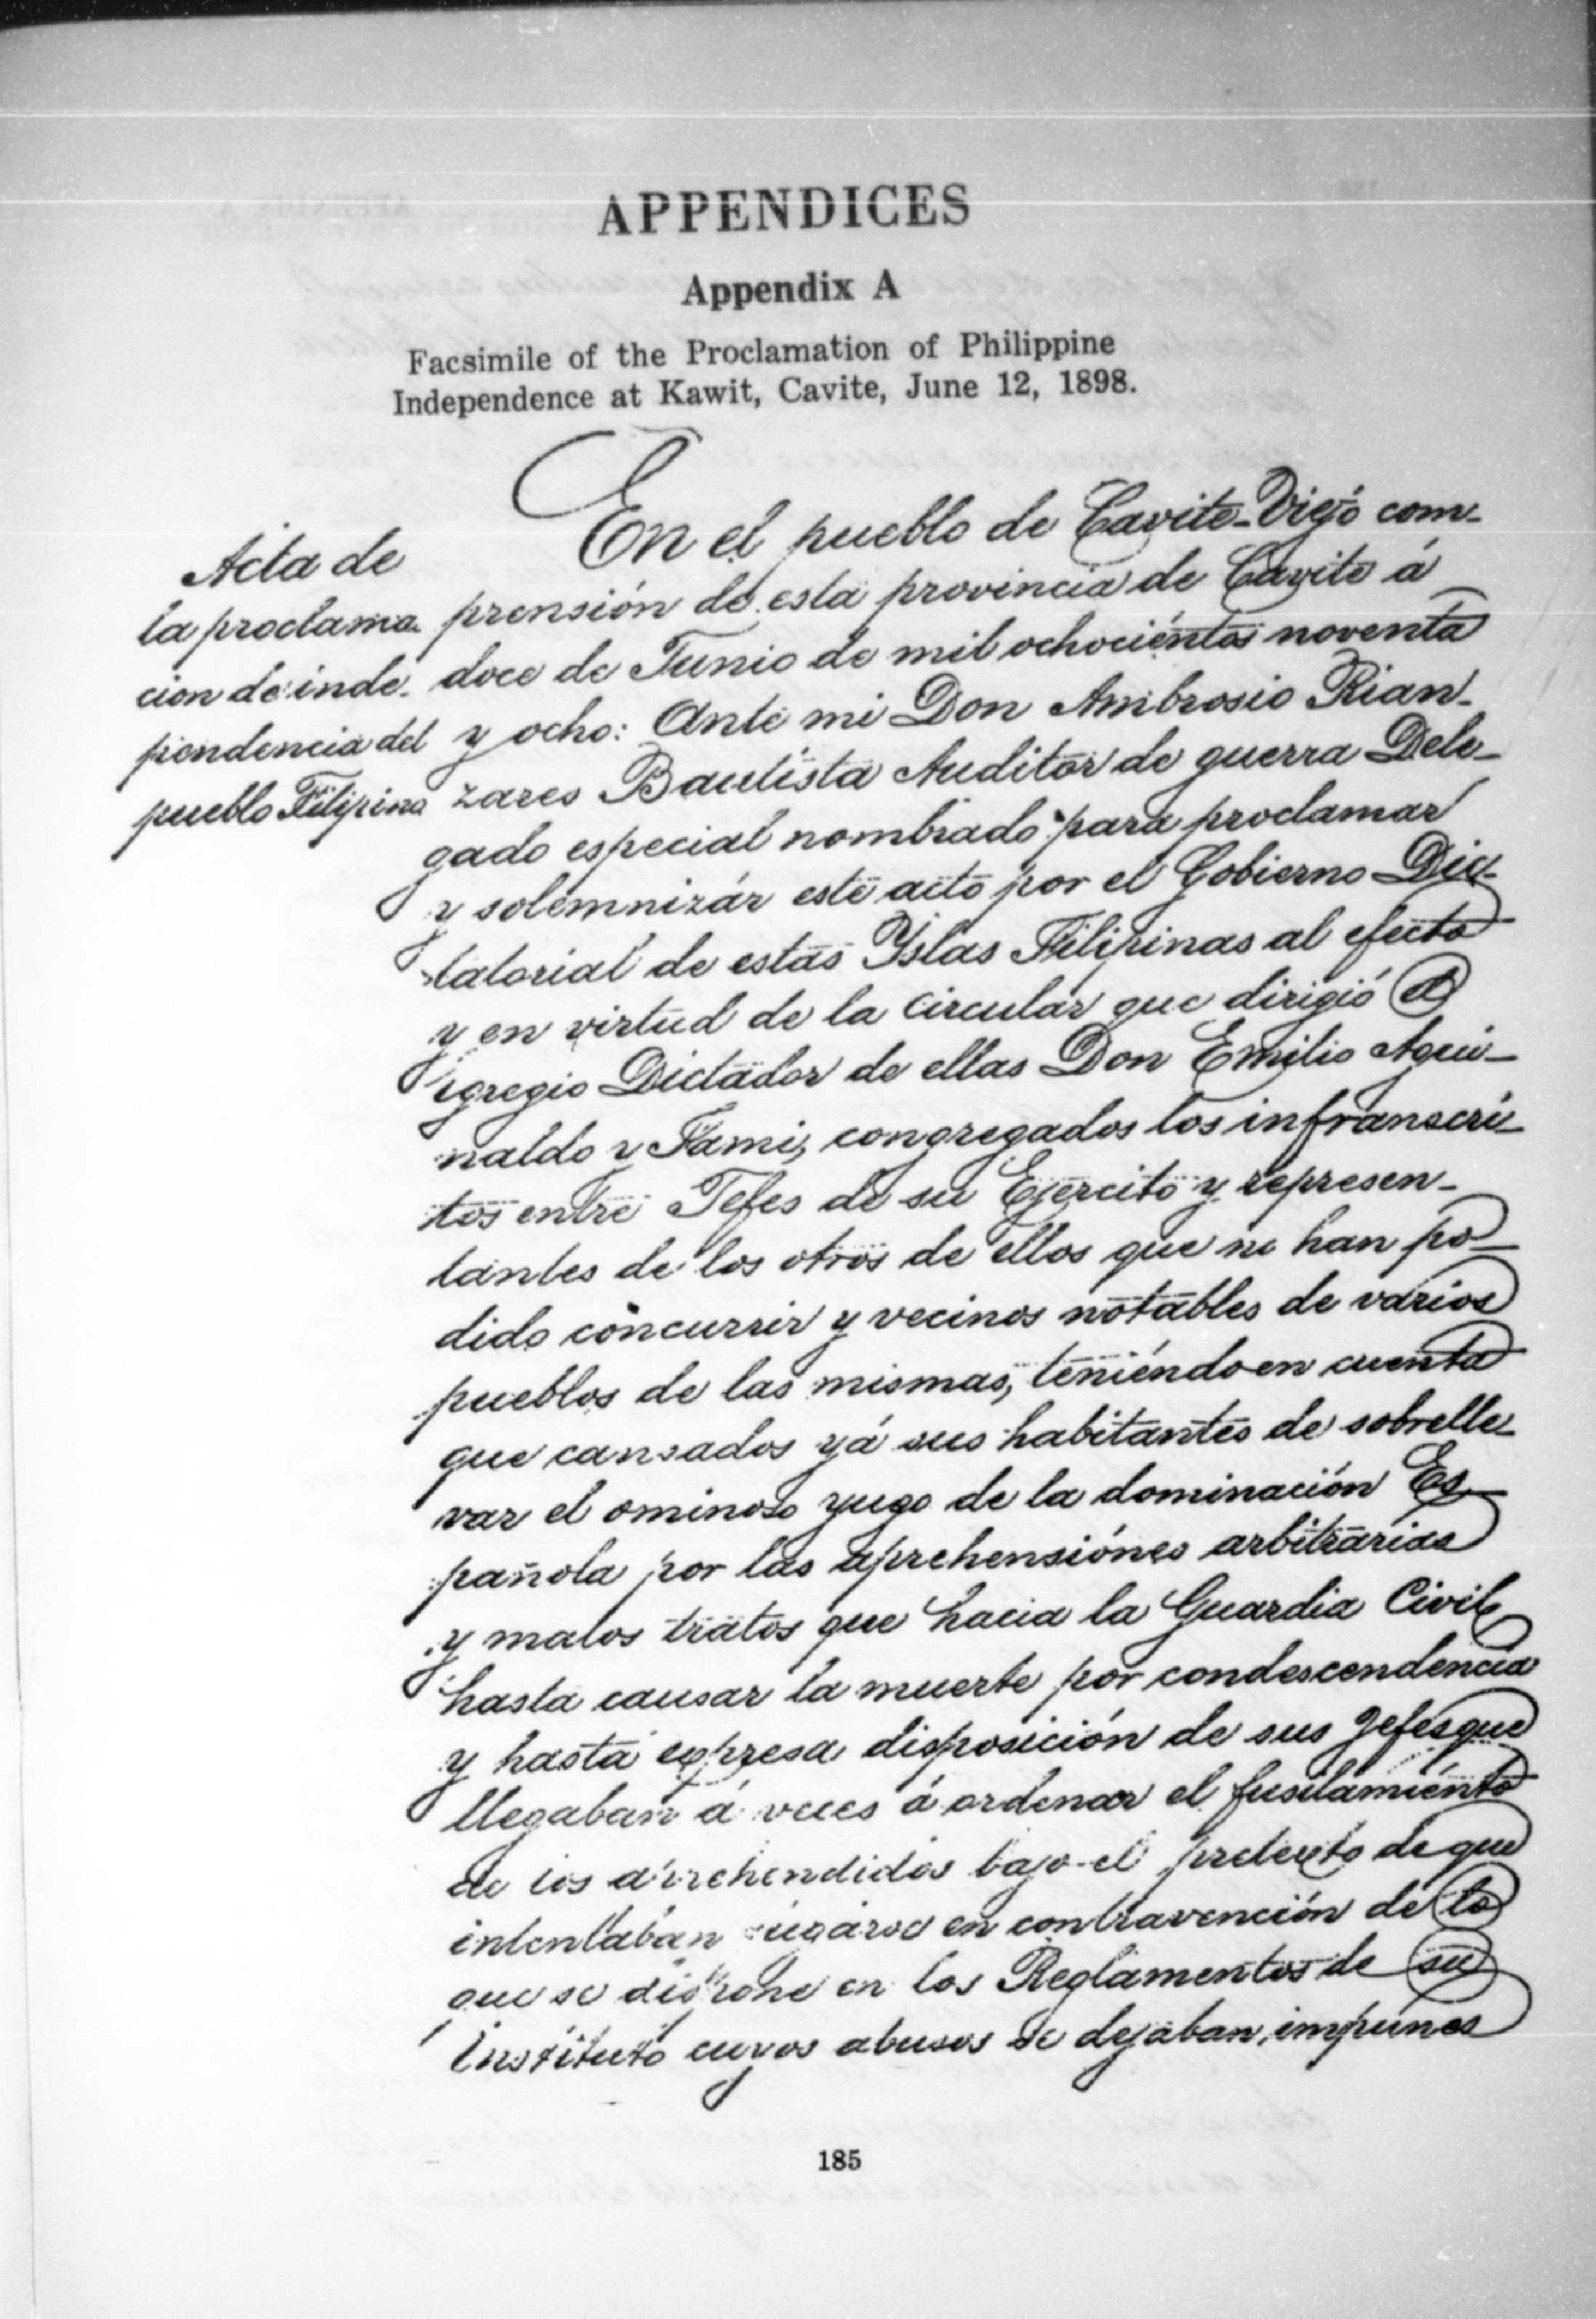 APPENDICES
Appendix A
Facsimile of the Proclamation of Philippine
Independence at Kawit, Cavite, June 12, 1898.
Acta de
la proclama-
cion de inde-
pendencia del
pueblo Filipino
En el pueblo de Cavite-Viejo com-
prensión de esta provincia de Cavite á
doce de Junio de mil ochociéntos noventa
y ocho: Ante mi Don Ambrosio Rian-
zares Bautista Auditor de guerra Dele-
gado especial nombrado para proclamar
y solemnizár este acto por el Gobierno Dic-
tatorial de estas Yslas Filipinas al efecto
y en virtud de la circular que dirigió el
egregio Dictador de ellas Don Emilio Agui-
naldo y Fami, congregados los infranscri-
tos entre Jefes de su Ejercito y represen-
tantes de los otros de ellos que no han po-
dido concurrir y vecinos notables de varios
pueblos de las mismas, teniéndo en cuenta
que cansados yá sus habitantes de sobrelle-
var el ominoso yugo de la dominación Es-
pañola por las aprehensiónes arbitrarias
y malos tratos que hacia la Guardia Civil
hasta causar la muerte por condescendencia
y hasta expresa disposición de sus gefes que
llegaban á veces á ordenar el fusilamiénto
de los aprehendidos bajo el pretexto de que
intentaban fugarse en contravención de lo
que se dispone en los Reglamentos de su
Instituto cuyos abusos se dejaban impúnes
185